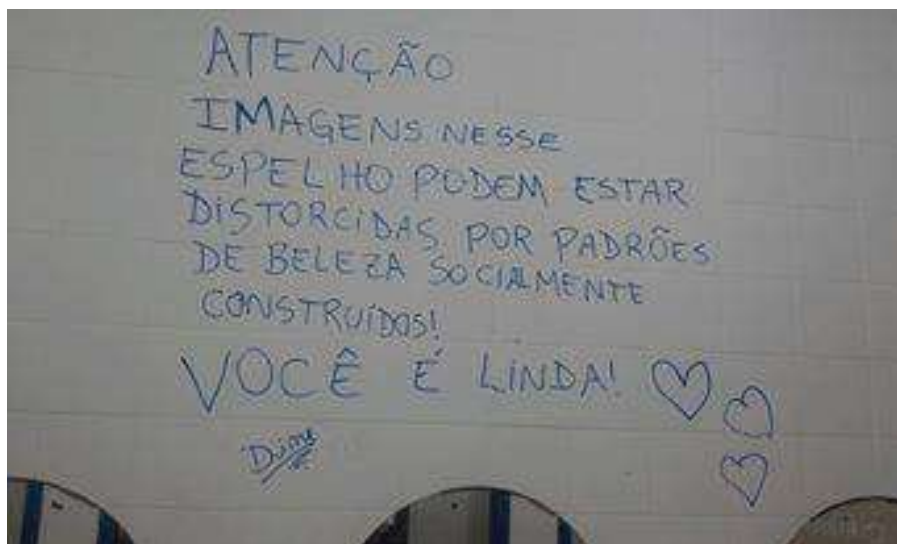 ATENÇÃO
IMAGENS NESSE
ESPELHO PODEM ESTAR
DISTORCIDAS POR PADRÕES
DE BELEZA SOCIALMENTE
CONSTRUÍDOS!
VOCÊ É LINDA!